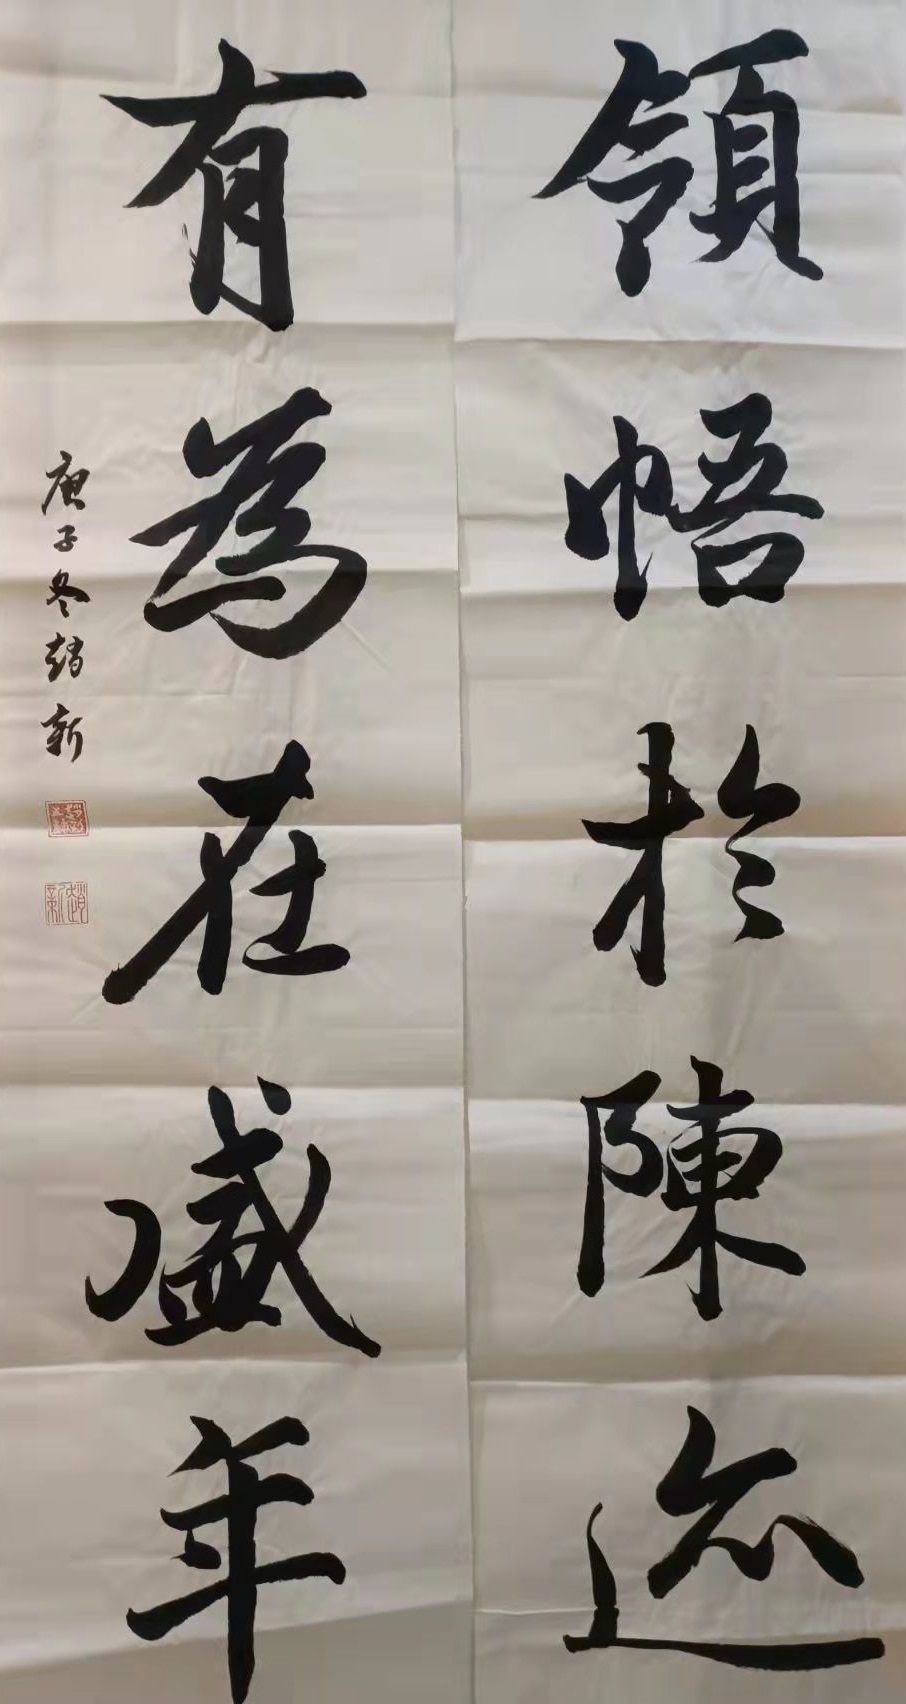 領悟於陳迹
有為在盛年
庚子冬趙新
趙新